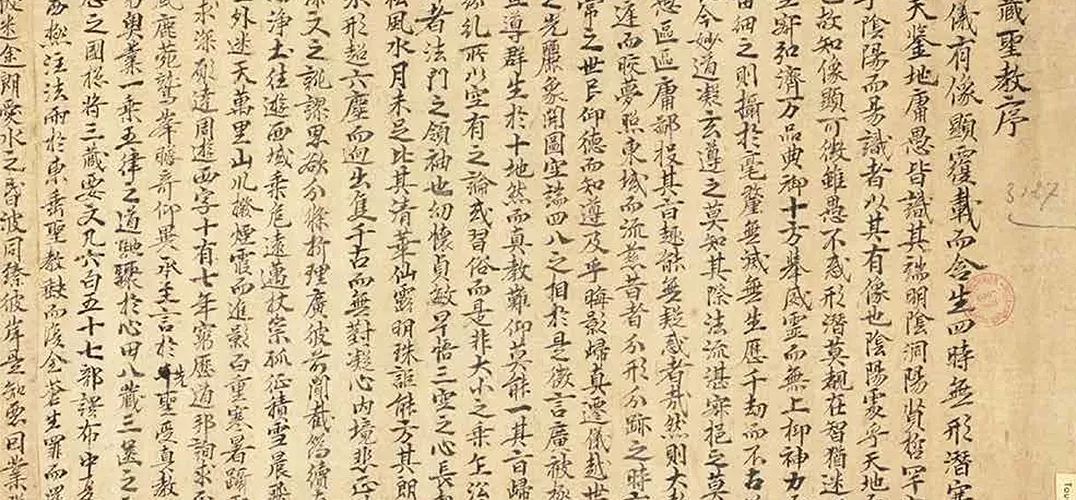 藏聖教序
儀有像顯覆載而含生四時無形潛寒
天鑒地庸愚皆識其端明陰洞陽賢哲罕
乎陰陽而易識者以其有像也陰陽處乎天地
也故知像顯可徵雖愚不惑形潛莫覩在智猶迷
空寂弘濟万品典御十方舉威靈而無上抑神力
宙細之則攝於毫釐無滅無生歷千劫而不古
今妙道凝玄遵之莫知其際法流湛寂挹之莫
愚區區庸鄙投其旨趣能無疑惑者哉然則大
庭而皎夢照東域而流慈昔者分形分跡之時言
常之世民仰德而知遵及乎晦影歸真遷儀越世
之光麗象開圖空端四八之相於是微言廣被
宣導群生於十地然而真教難仰莫能一其旨歸
紛乱所以空有之論或習俗而是非大小之乘乍沿
者法門之領袖也幼懷貞敏早悟三空之心長
松風水月未足比其清華仙露明珠詎能方其朗
形超六塵而逈出隻千古而無對凝心內境悲正
深文之訛謬思欲分條析理廣彼前聞截偽續真
淨土往遊西域乘危遠邁杖策孤征積雪晨飛
外迷天萬里山川撥煙霞而進影百重寒暑躡
求深願達周遊西宇十有七年窮歷道邦詢求正
鹿苑鷲峯瞻奇仰異承至言於先聖受真教
奧業一乘五律之道馳驟於心田八藏三篋之
之國惣將三藏要文凡六百五十七部譯布中夏
極注法雨於東垂聖教缺而復全蒼生罪而還
迷途朗愛水之昏波同臻彼岸是知惡因業
3127